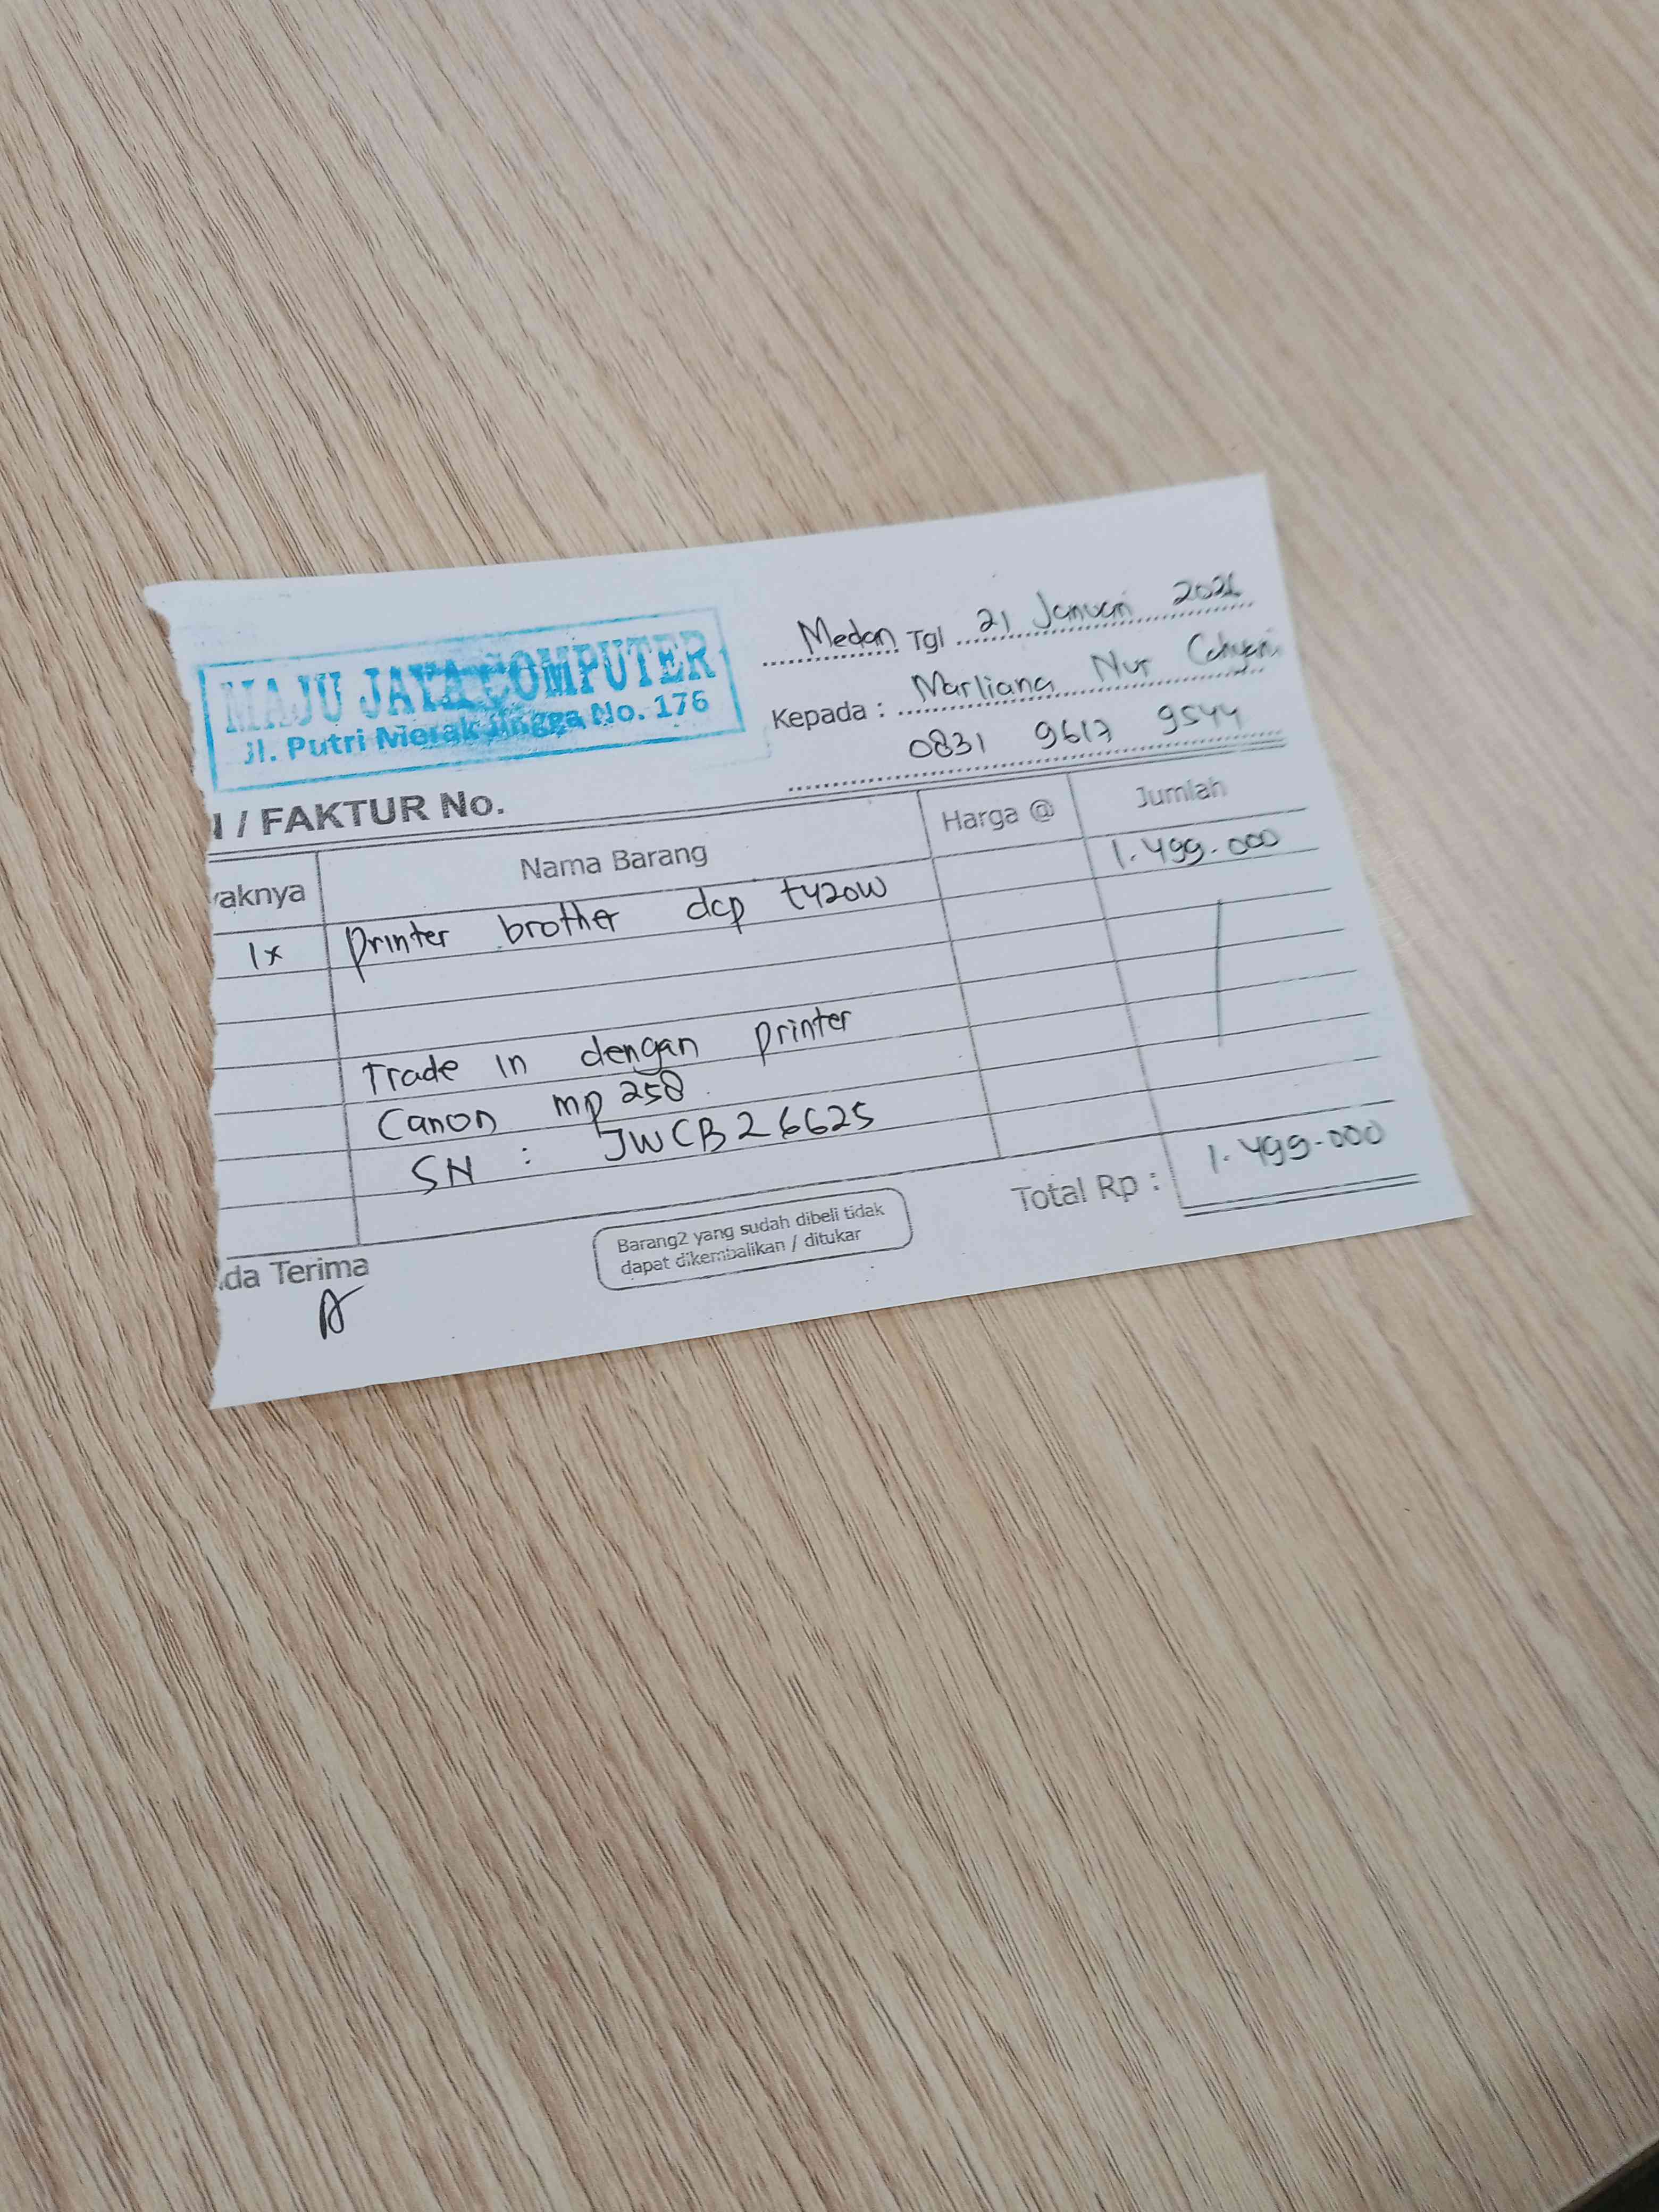 MAJU JAYA COMPUTER
Jl. Putri Merak Jingga No. 176
Medan Tgl 21 Januari 2026
Kepada : Marliana Nur Cahyani
0831 9617 9544
/ FAKTUR No.
yaknya Nama Barang Harga @ Jumlah
1x printer brother dcp t420w 1.499.000
Trade in dengan printer
Canon mp 258
SN : JWCB26625
Total Rp : 1.499.000
da Terima
Barang2 yang sudah dibeli tidak
dapat dikembalikan / ditukar